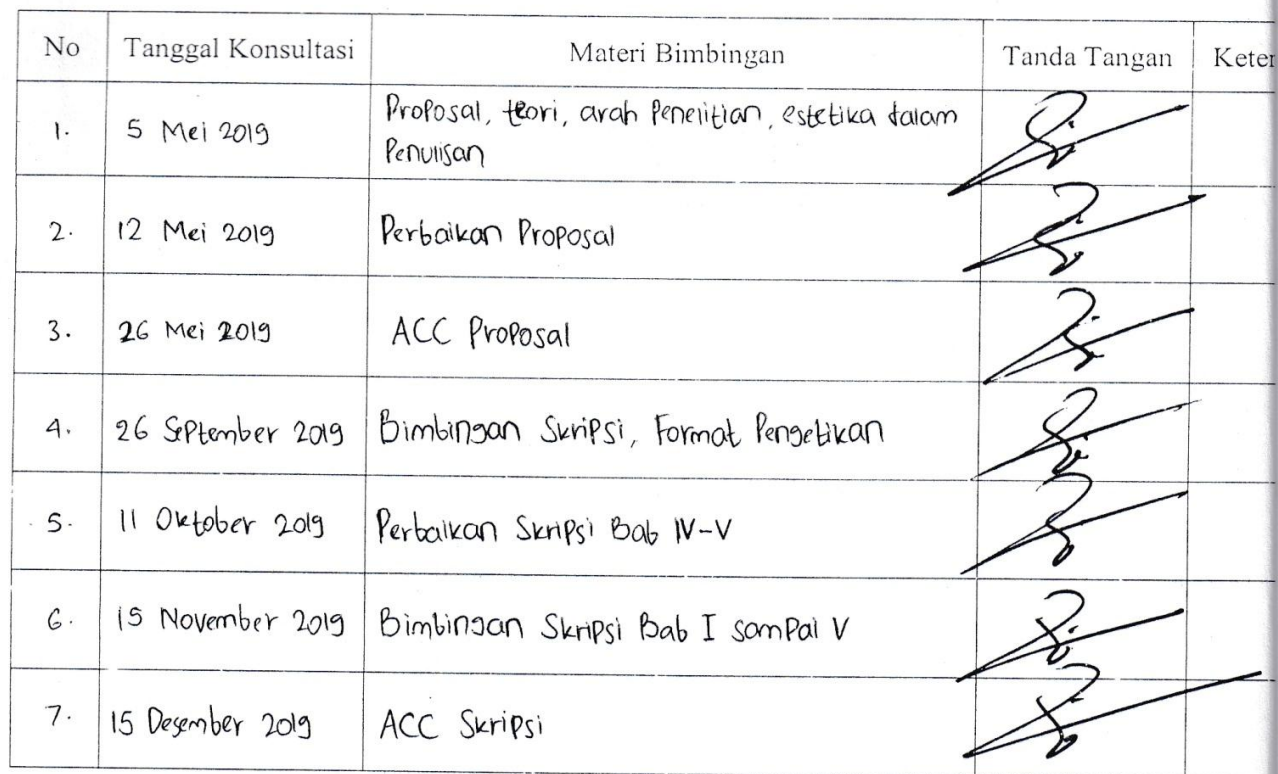 No Tanggal Konsultasi Materi Bimbingan Tanda Tangan Keter
1. 5 Mei 2019 Proposal, teori, arah Penelitian, estetika dalam
Penulisan
2. 12 Mei 2019 Perbaikan Proposal
3. 26 Mei 2019 ACC Proposal
4. 26 September 2019 Bimbingan Skripsi, Format Pengetikan
5. 11 Oktober 2019 Perbaikan Skripsi Bab IV-V
6. 15 November 2019 Bimbingan Skripsi Bab I sampai V
7. 15 Desember 2019 ACC Skripsi